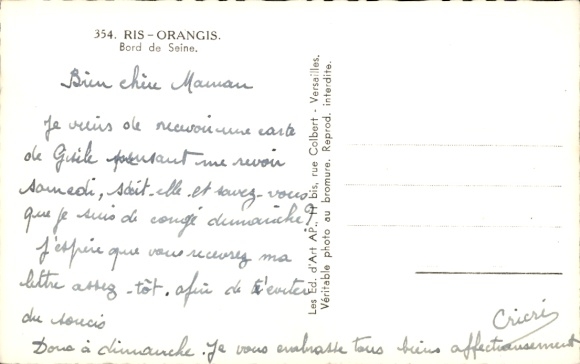 354. RIS-ORANGIS.
Bord de Seine.
Bien chère Maman
Je viens de recevoir une carte
de Gisèle pensant me revoir
samedi, sait-elle et savez-vous
que je suis de congé dimanche?
J'espère que vous recevrez ma
lettre assez-tôt. afin de t'éviter
du soucis
Donc à dimanche. Je vous embrasse tous biens affectueusement
Cricri
Les Ed. d'Art AP., 11 bis, rue Colbert - Versailles.
Véritable photo au bromure. Reprod. interdite.